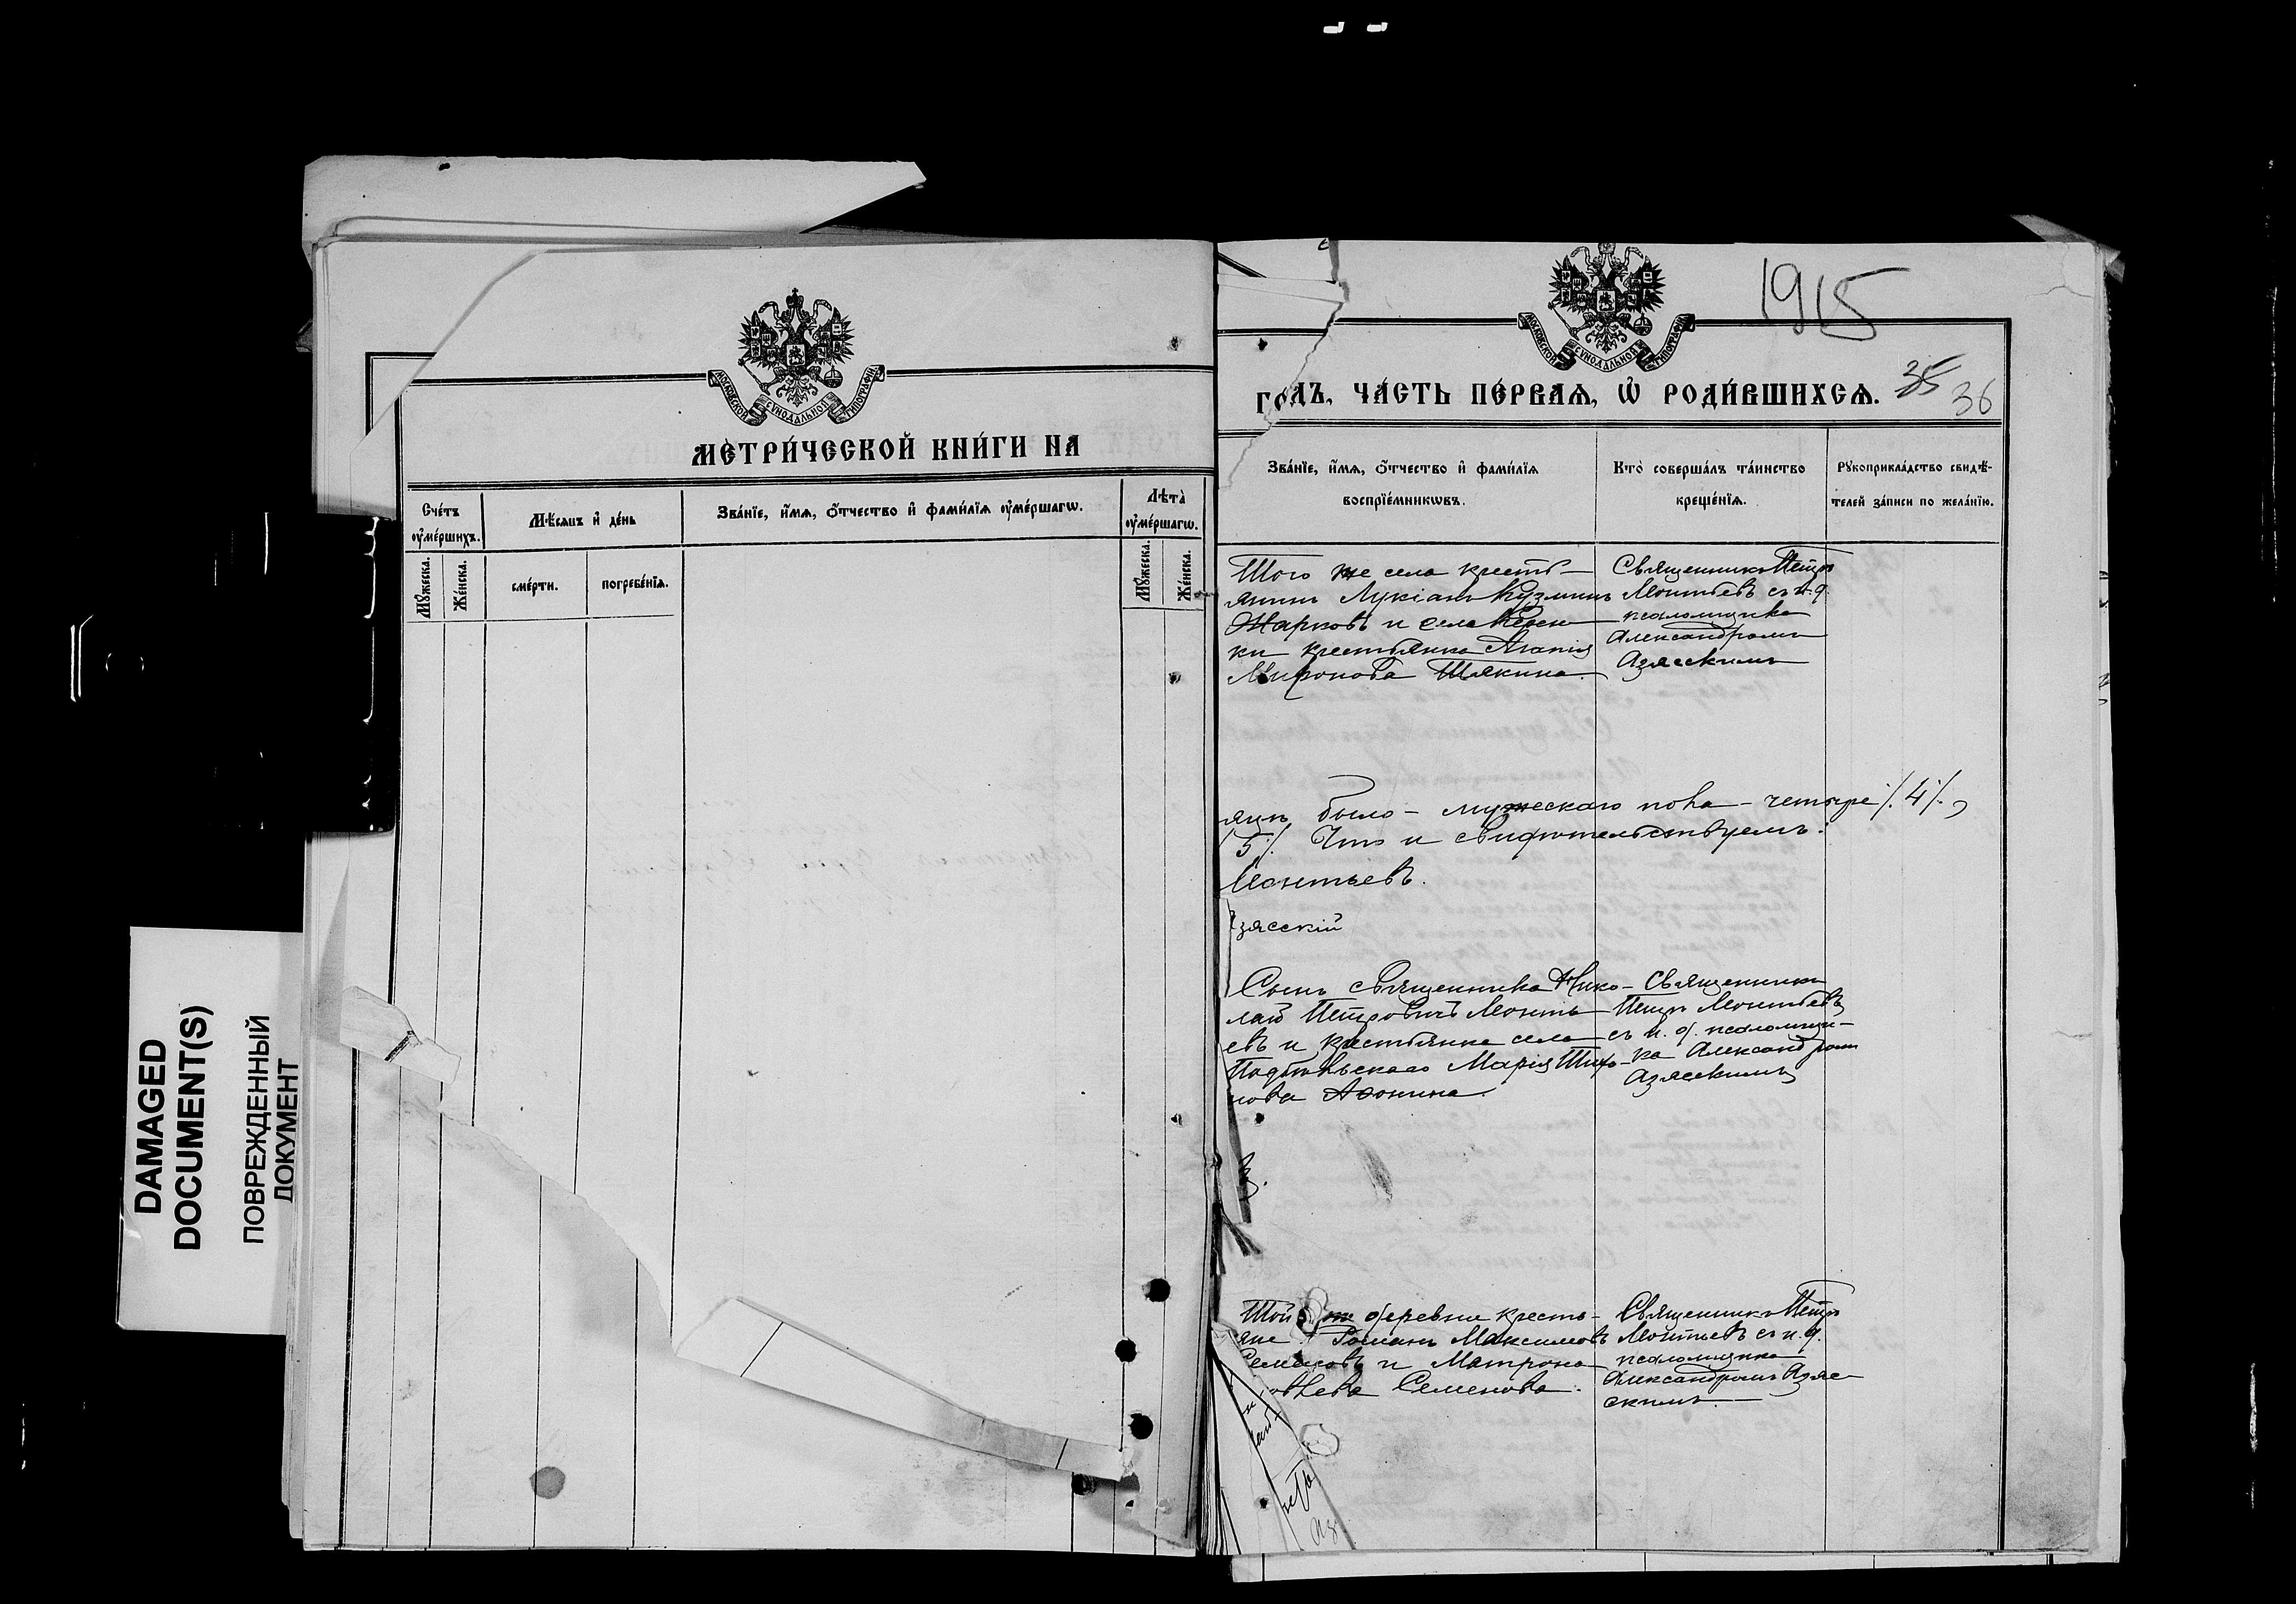 DAMAGED
DOCUMENT(S)
ПОВРЕЖДЕННЫЙ
ДОКУМЕНТ
МОСКОВСКОЙ СѴНОДАЛЬНОЙ ТИПОГРАФІИ
МЕТРИ́ЧЕСКОЙ КНИ́ГИ НА
Сче́тъ ѹ҆ме́ршихъ.
Мѣ́сѧцъ и҆ де́нь
Зва́нїе, и҆́мѧ, ѻ҆́тчество и҆ фами́лїѧ ѹ҆ме́ршагѡ.
Лѣта̀ ѹ҆ме́ршагѡ.
Мꙋ́жеска.
Же́нска.
сме́рти.
погребе́нїѧ.
Мꙋ́жеска.
Же́нска.
1915
МОСКОВСКОЙ СѴНОДАЛЬНОЙ ТИПОГРАФІИ
ГО́ДЪ, ЧА́СТЬ ПЕ́РВАѦ, Ѡ҆ РОДИ́ВШИХСѦ.
35
36
Зва́нїе, и҆́мѧ, ѻ҆́тчество и҆ фами́лїѧ
воспрїе́мникѡвъ.
Кто̀ соверша́лъ та́инство
креще́нїѧ.
Рꙋкоприкла́дство свидѣ́-
телей за́писи по жела́нїю.
Того же села кресть-
янинъ Лукіанъ Кузминъ
Жарковъ и села Керен
ки крестьянка Агапія
Миронова Шлякина.
Священникъ Петръ
Леонтьевъ съ и. д.
псаломщика
Александромъ
Азясскимъ
было - мужескаго пола - четыре /. 4 /. ,
/ 5 /. Что и свидѣтельствуемъ:
Леонтьевъ.
зясскій
Сынъ священника Нико-
лай Петровичъ Леонть
евъ и крестьянка села
Марія Тихо-
нова Афонина.
Священникъ
Петръ Леонтьевъ
съ и. д. псаломщи-
ка Александромъ
Азясскимъ
Той же деревни кресть-
яне Романъ Максимовъ
Семеновъ и Матрона
Семенова.
Священникъ Петръ
Леонтьевъ съ и. д.
псаломщика
Александромъ Азяс-
скимъ.